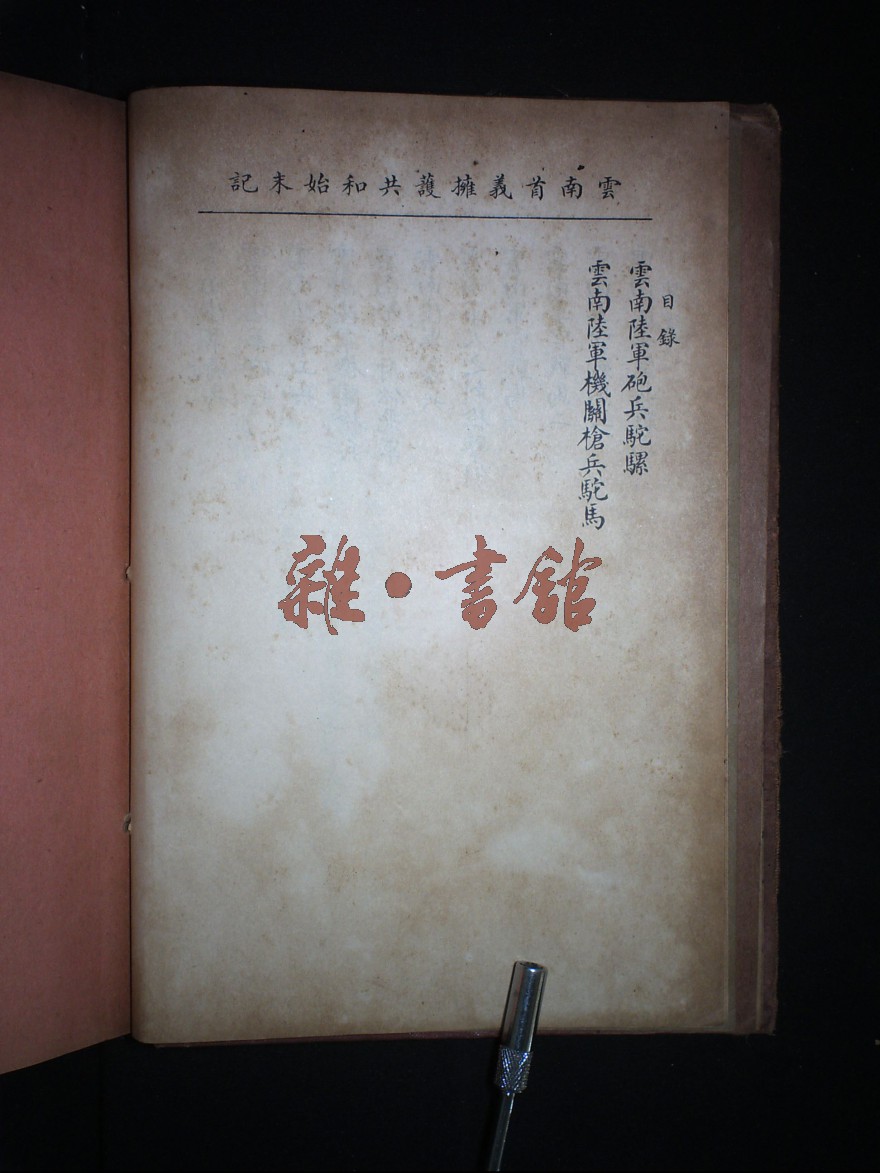 雲南首義擁護共和始末記
目錄
雲南陸軍砲兵駝騾
雲南陸軍機關槍兵駝馬
雜·書館